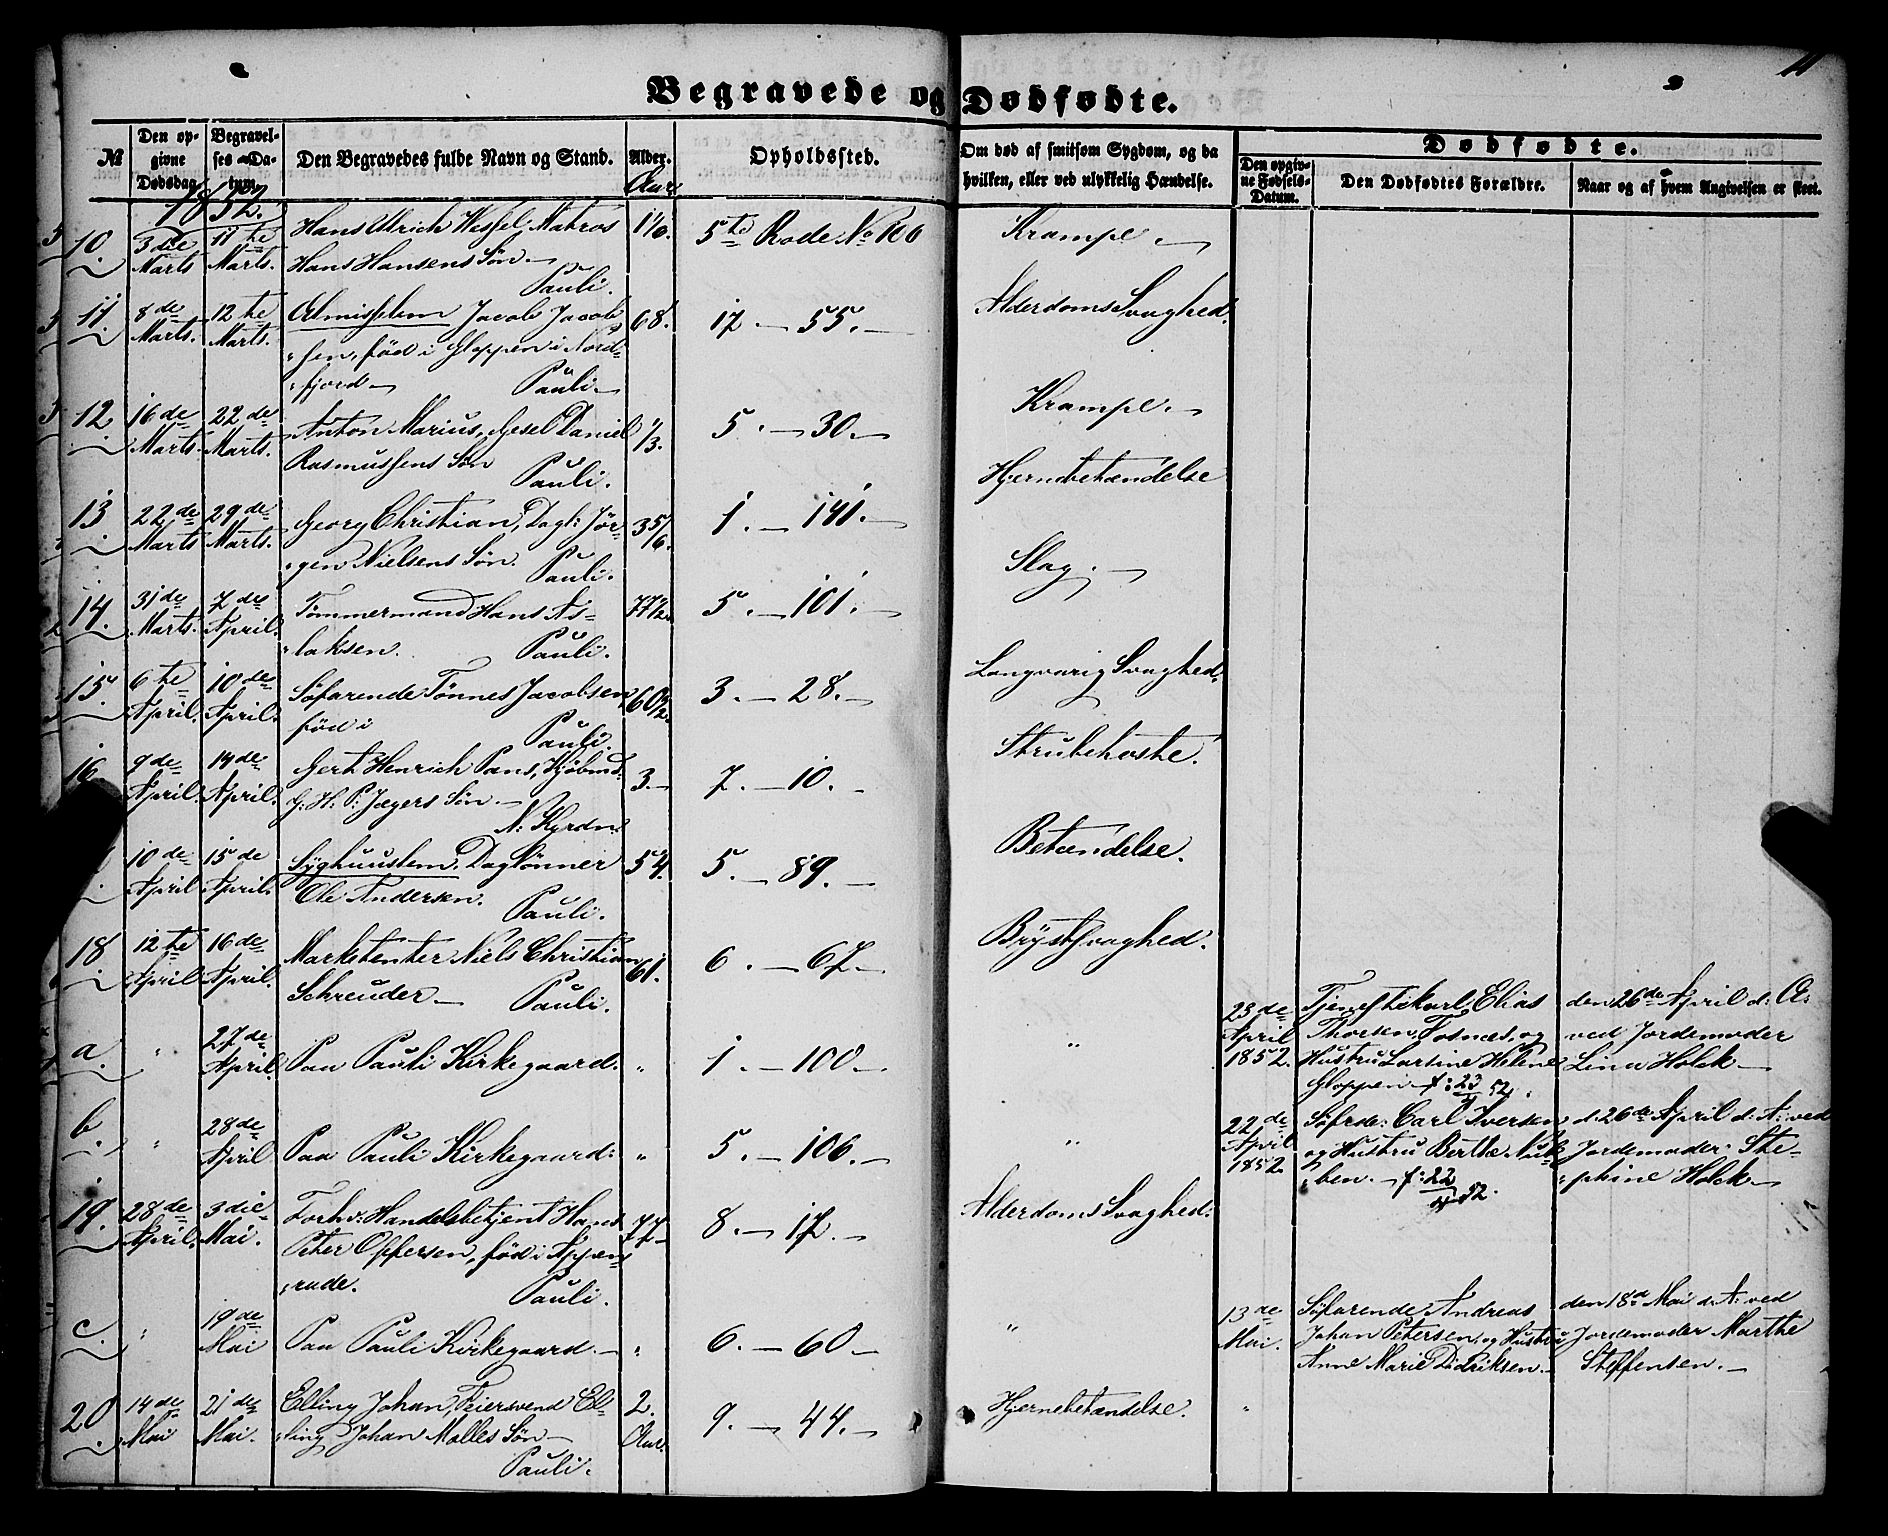 11
Begravede og Dødfødte.
№
Den opgivne Dødsdag.
Begravelses-Datum.
Den Begravedes fulde Navn og Stand.
Alder.
Aar.
Opholdssted.
Om død af smitsom Sygdom, og da hvilken, eller ved ulykkelig Hændelse.
Dødfødte.
Den opgivne Fødsels-Datum.
Den Dødfødtes Forældre.
Naar og af hvem Angivelsen er skeet.
1852.
10. 3die Marts 11te Marts. Hans Ulrich Wessel, Matros 1/6. 5te Rode No 106 Krampe.
Hans Hansens Søn.
Pauli.
11. 8de Marts. 12te Marts. Almisselem Jacob Jacob- 68. 17. — 55. Alderdoms Svaghed.
sen, fød i Gloppen i Nord-
fjord Pauli.
12. 16de Marts. 22de Marts. Anton Marius, Gesel Daniel 1/3. 5. — 30. Krampe.
Rasmussens Søn
Pauli.
13. 22de Marts 29de Marts. Georg Christian, Dagl: Jør- 3 5/6. 1. — 141. Hjernebetændelse
gen Nielsens Søn.
Pauli.
14. 31de Marts. 7de April. Tømmermand Hans As- 77½. 5. — 101. Slag.
laksen. Pauli.
15. 6te April. 10de April. Søfarende Tønnes Jacobsen, 60½. 3. — 28. Langvarig Svaghed.
fød i Pauli.
16. 9de April. 14de April. Gert Henrich Pans, Kjøbmd: 3. 7. — 10. Strubehoste.
G: H: P: Jægers Søn.
N: Kyrdn:
10de April 15de April. Syghuuslem, Dagлønner 54. 5. — 89. Betændelse.
Ole Andersen. Pauli.
18. 12te April 16de April. Marketenter Niels Christian 61. 6. — 67. Brystsvaghed.
Schreuder Pauli.
a. " 27de April. Paa Pauli Kirkegaard. " 1. — 100. " 23de April 1852. Tjenestekarl Elias den 26de April d: A:
Thoesen Fosnæs, og ved Jordemoder
Hustru Lartine Helene Lina Holck
Gloppen f: 23/4 52.
b. " 28de April Paa Pauli Kirkegaard: " 5. — 106. " 22de April 1852. Søfrde: Carl Iversen d: 26de April d: A: ved
og Hustru Berthe Nub- Jordemoder Ste-
ben. f: 22/4 52. phine Holck
19. 28de April. 3die Mai. Forhv: Handelsbetjent Hans 77 8. — 17. Alderdoms Svaghed.
Peter Offersen, fød i Appen-
rade. Pauli.
c. " 19de Mai Paa Pauli Kirkegaard. " 6. — 60 " 13de Mai. Søfarende Andreas den 18de Mai d: A: ved
Johan Petersen, og Hustru Jordemoder Marthe
Anne Marie Didriksen. Steffensen.
20. 14de Mai 21de Mai. Elling Johan, Feiersvend El- 2. Aar. 9. — 44. Hjernebetændelse. "
ling Johan Malles Søn
Pauli.